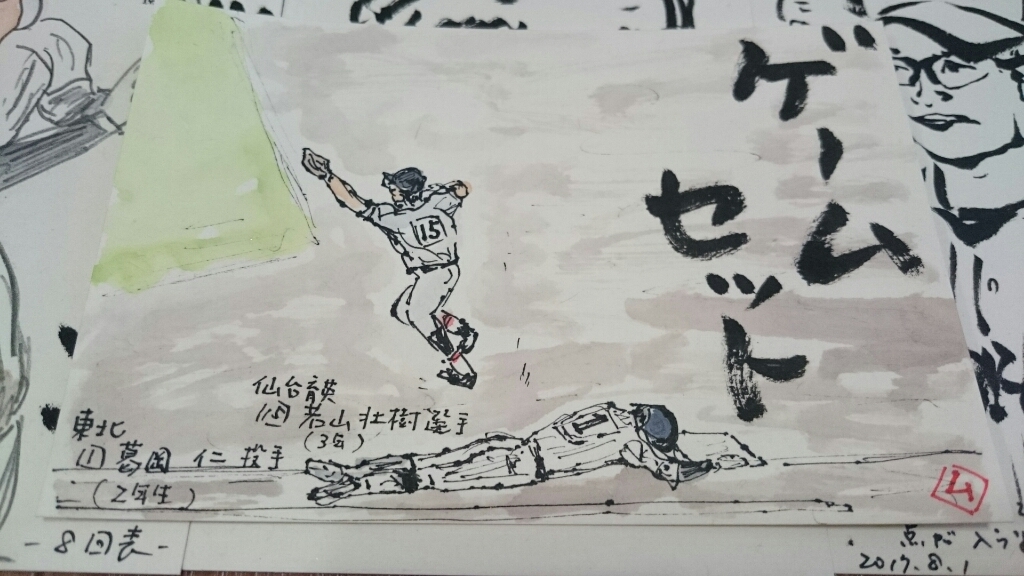 ゲームセット
15
仙台育英
⑮ 若山壮樹選手
(3年)
東北
⑪ 葛岡 仁 投手
(2年生)
1
ム
-8回表-
点が入
2017.8.1